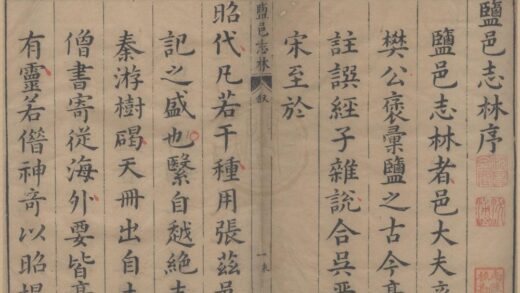 鹽邑志林序
鹽邑志林者邑大夫
樊公裒彙鹽之古今
註譔經子雜說合吳
宋至於
鹽邑志林
敘
昭代凡若干種用張茲邑
記之盛也繄自越絕
秦游樹碣天冊出自
僧書寄從海外要皆
有靈若僭神奇以昭